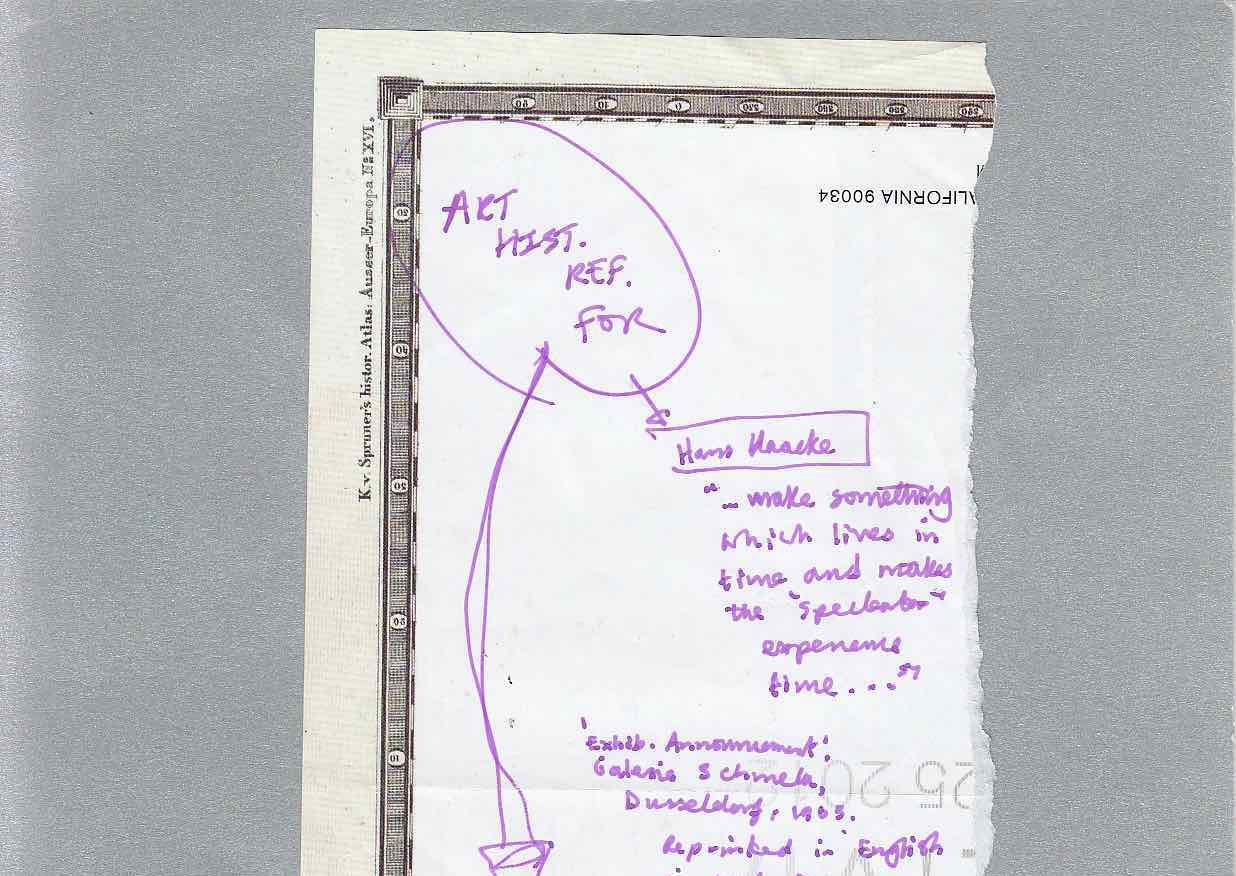 K.v. Spruner's histor. Atlas: Ausser-Europa No XVI.
CALIFORNIA 90034
ART
HIST.
REF.
FOR
Hans Haacke
"... make something
which lives in
time and makes
the "spectator"
experience
time . . . ."
'Exhib. Announcement',
Galerie Schmela,
Dusseldorf, 1965.
Reprinted in English
25 201